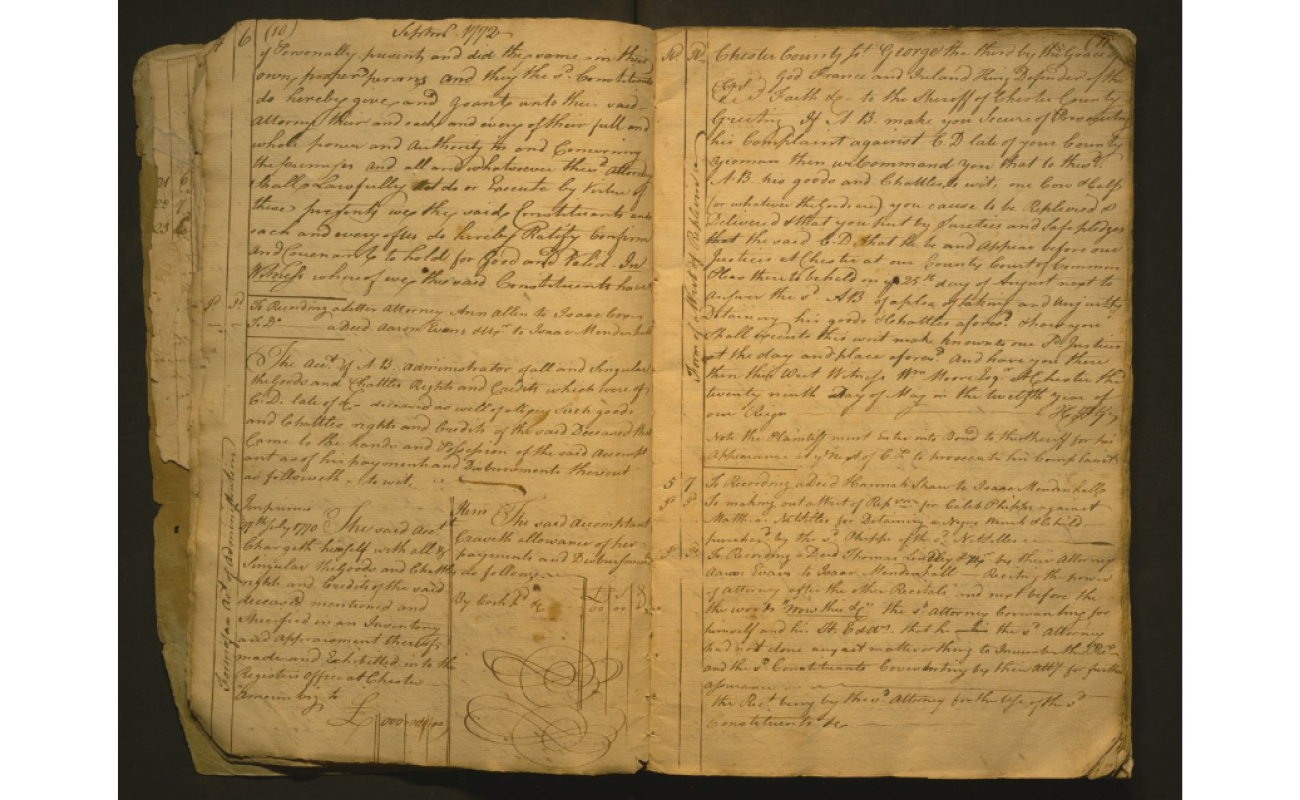 6 (10) Septem. 1772
y Personally present and did the same in their
own proper persons and they the sd. Constituents
do hereby give and grant unto their said
Attorney their and each and every of their full and
whole power and Authority in and Concerning
the premises and all and whatsoever the sd. Attorney
shall Lawfully do or Execute by Virtue of
these presents we the said Constituents and
each and every of us do hereby Ratify Confirm
and Covenant to hold for Good and Valid. In
Witness whereof we the said Constituents have
To Recording a Letter Attorney Ann Allen to Isaac
To Do. a Deed Aaron Evans to Isaac Mendenhall
The Acct. of A B. administrator of all and Singular
the Goods and Chattles Rights and Credits which were of
C. D. late of &c deceased as well of such goods
and Chattles rights and Credits of the said Deceased that
Came to the hands and Possession of the said Accompt
ant as of his payments and Disbursements thereout
as followeth to wit
Form of an Act of Administration
Imprimis
July 1770 The said Acct
Chargeth himself with all &
Singular the Goods and Chattles
rights and Credits of the said
deceased mentioned and
Specified in an Inventory
and appraisment thereof
made and Exhibitted into the
Registers Office at Chester
Amounting to
£ 000
Item The said Accomptant
Craveth allowance of her
payments and Disbursments
as follows
By Cash pd. &c
£ S D
00 00 0
(11)
Chester County Ss. George the third by the Grace of
God France and Ireland King Defender of the
Faith &c - to the Sheriff of Chester County
Greeting If A. B. make you Secure of Prosecuting
his Complaint against C. D late of your County
yeoman then we Command you that to the sd.
A. B. his goods and Chattles to wit, one Cow & Calf
(or whatever the Goods are) you cause to be Replevied &
Delivered & that you put by Sureties and Safe pledges
the said C. D. that he be and Appear before our
Justices at Chester at our County Court of Common
Pleas there to be held on ye 25th day of August next to
answer the sd. A B of a plea of taking and unjustly
Detaining his goods & Chattles aforesd. & how you
Shall execute this writ make known to our sd. Justices
at the day and place aforesd. And have you there
then this Writ Witness Wm. Moore Esqr. at Chester the
twenty ninth Day of May in the twelfth year of
our Reign
Form of a Writ of Replevin
Note the Plaintiff must Enter into Bond to the Sheriff for his
Appearance at ye next C. to prosecute his Complaint
5 7 To Recording a Deed Hannah Shaw to Isaac Mendenhall
To making out a Writ of Replevin for Caleb Phipps against
Matthias for Detaining a Negro Wench & Child
purchased by the sd. Phipps of the sd.
To Recording a Deed Thomas Lindley & by their Attorney
Aaron Evans to Isaac Mendenhall Reciting the power
of Attorney after the other Recitals and next before the
the words "Now this &c" the sd. Attorney Covenanting for
himself and his that he the sd. Attorney
had not done any act matter or thing to Incumber the
and the sd. Constituents Covenanting by their Atty. for further
assurance
the Rect. being by the sd. Attorney for the Use of the sd
Constituents &c